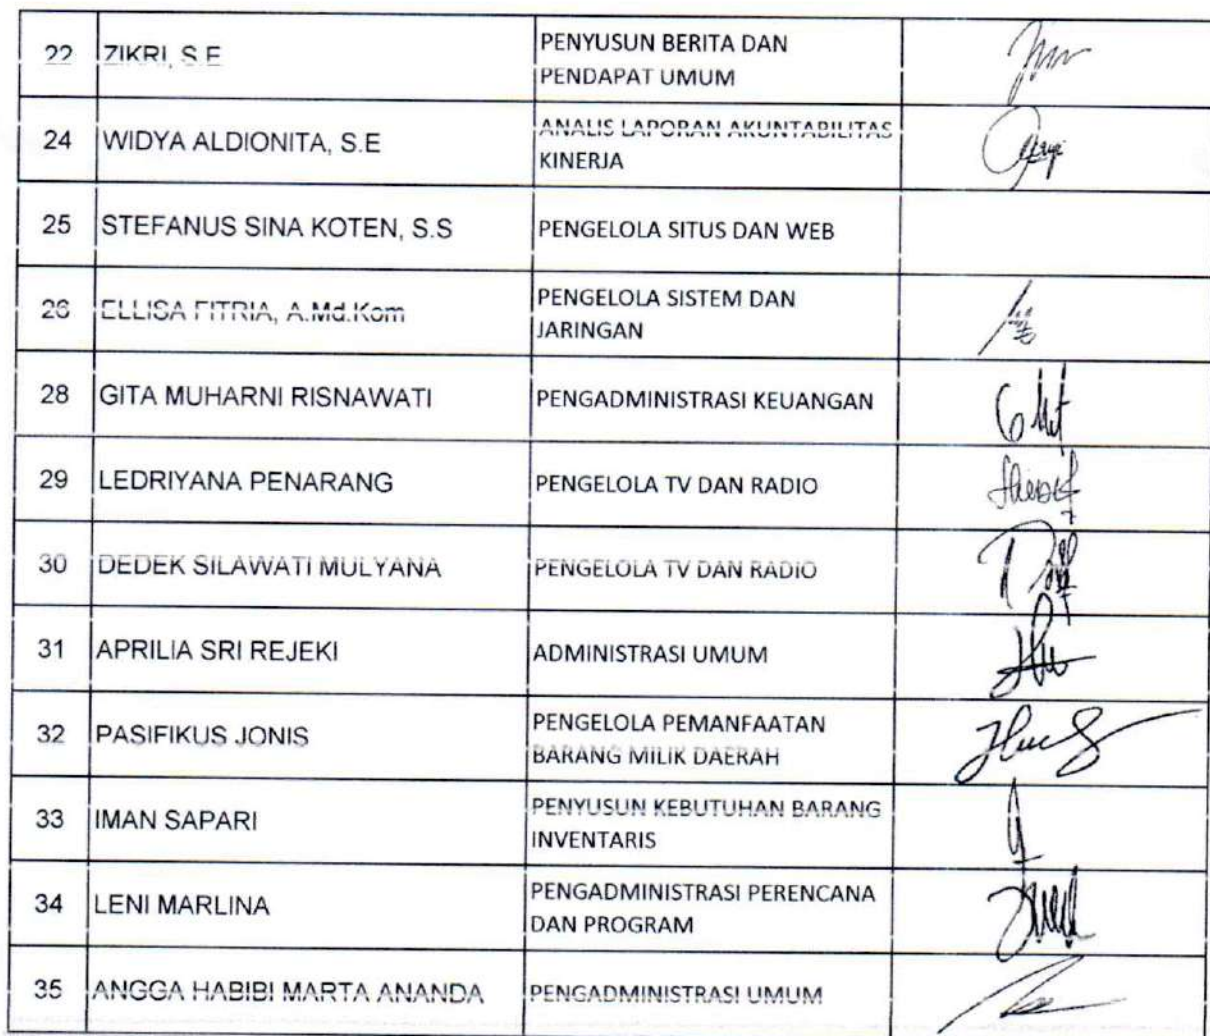 22 ZIKRI, S.E PENYUSUN BERITA DAN
PENDAPAT UMUM
24 WIDYA ALDIONITA, S.E ANALIS LAPORAN AKUNTABILITAS
KINERJA
25 STEFANUS SINA KOTEN, S.S PENGELOLA SITUS DAN WEB
26 ELLISA FITRIA, A.Md.Kom PENGELOLA SISTEM DAN
JARINGAN
28 GITA MUHARNI RISNAWATI PENGADMINISTRASI KEUANGAN
29 LEDRIYANA PENARANG PENGELOLA TV DAN RADIO
30 DEDEK SILAWATI MULYANA PENGELOLA TV DAN RADIO
31 APRILIA SRI REJEKI ADMINISTRASI UMUM
32 PASIFIKUS JONIS PENGELOLA PEMANFAATAN
BARANG MILIK DAERAH
33 IMAN SAPARI PENYUSUN KEBUTUHAN BARANG
INVENTARIS
34 LENI MARLINA PENGADMINISTRASI PERENCANA
DAN PROGRAM
35 ANGGA HABIBI MARTA ANANDA PENGADMINISTRASI UMUM